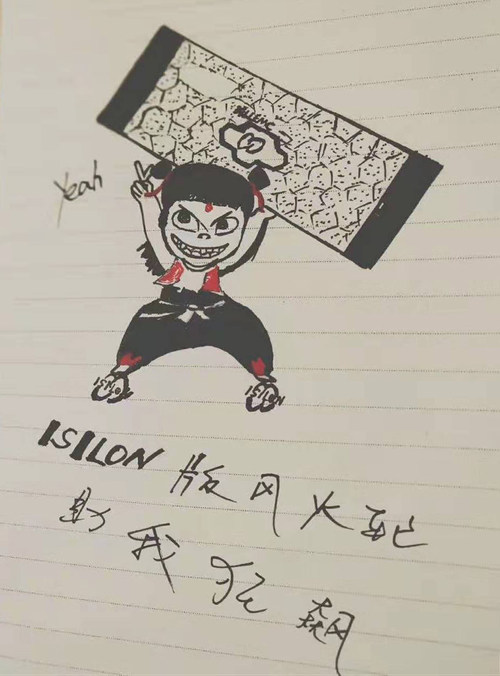 Yeah
ISILON
ISILON
ISILON 版风火轮
助我狂飙